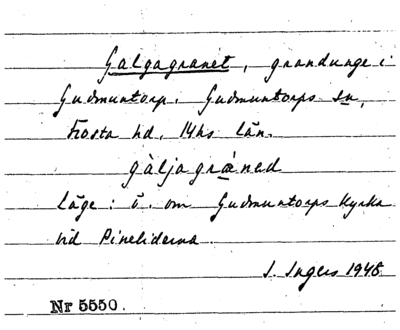 Galgagranet, grandunge i
Gudmuntorp. Gudmuntorps sn,
Frosta hd. Mhs län.
gàljagràned
Läge: ö. om Gudmuntorps kyrka
vid Pineliderna.
I. Ingers 1948
Nr 5550.